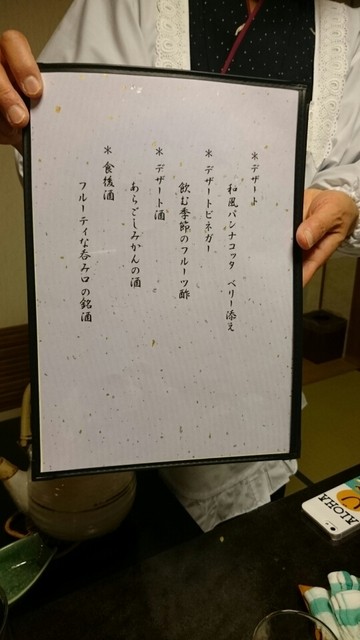 ＊デザート
和風パンナコッタ ベリー添え
＊デザートビネガー
飲む季節のフルーツ酢
＊デザート酒
あらごしみかんの酒
＊食後酒
フルーティな呑み口の銘酒
ALOHA